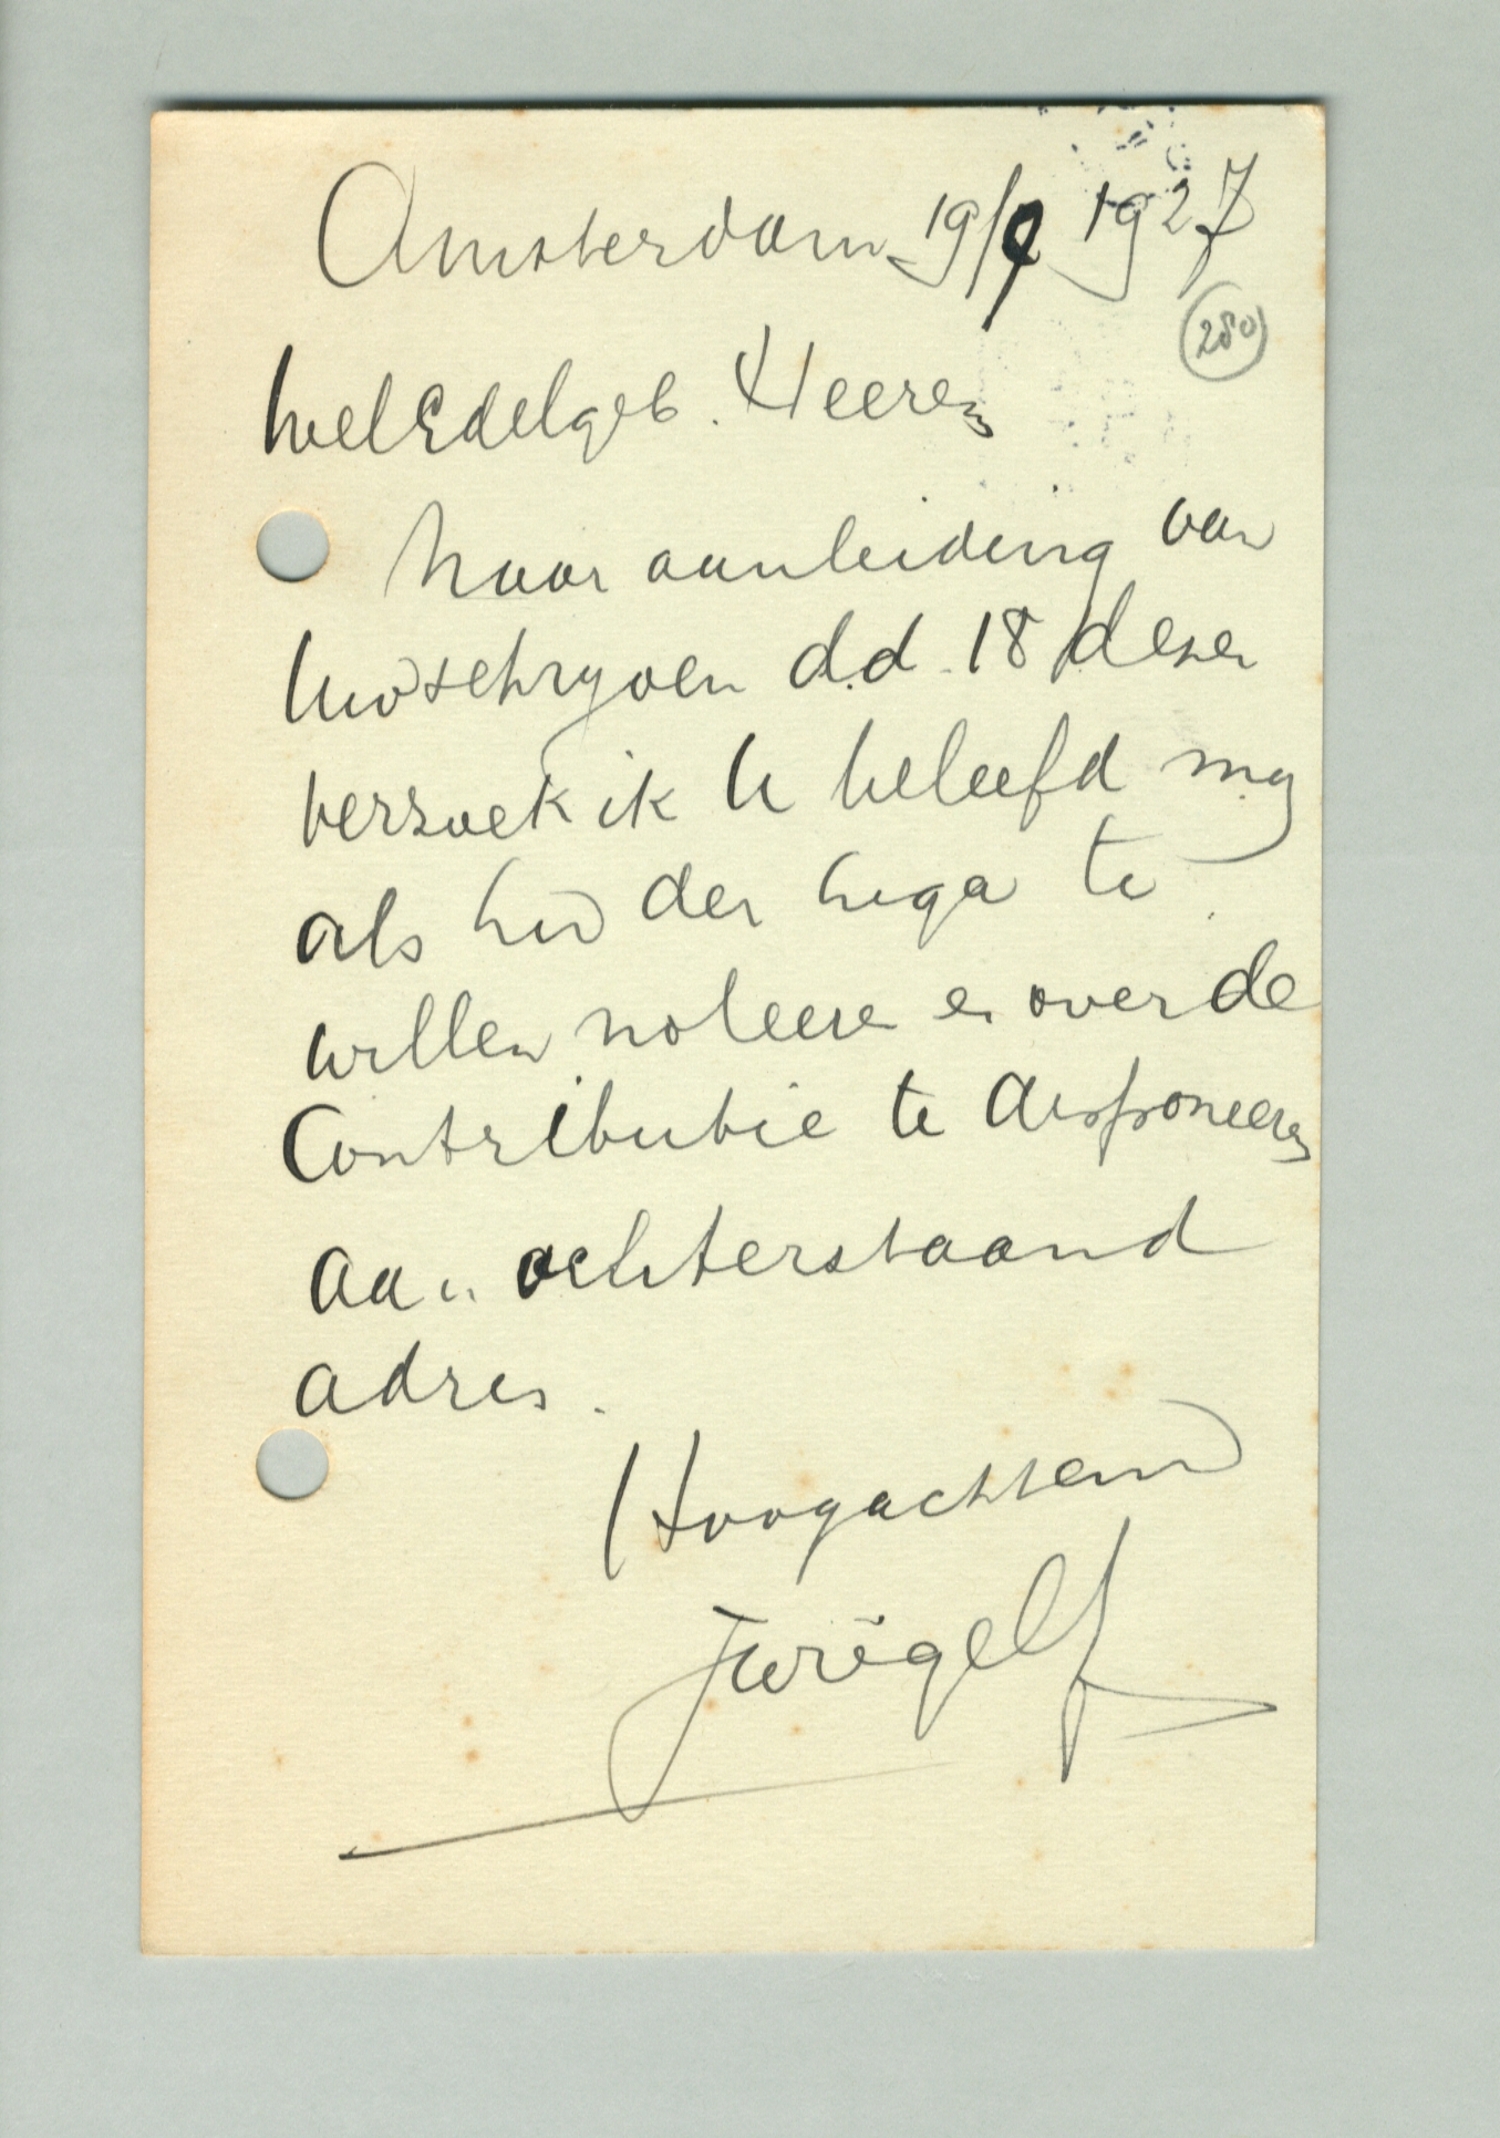 Amsterdam 19/9 1927
280
WelEdelgeb. Heeren
Naar aanleiding van
Uwschryven d.d. 18 dezer
verzoek ik U beleefd my
als lid der Liga te
willen noteere en over de
Contributie te disponeeren
aan achterstaand
adres.
Hoogachtend